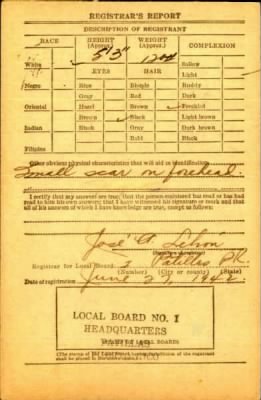 REGISTRAR'S REPORT
DESCRIPTION OF REGISTRANT
RACE HEIGHT (Approx.) WEIGHT (Approx.) COMPLEXION
5'3"
White Sallow
EYES HAIR Light
Negro Blue Blonde Ruddy
Gray Red Dark
Oriental Hazel Brown Freckled
Brown Black Light brown
Indian Black Gray Dark brown
Bald Black
Filipino
Other obvious physical characteristics that will aid in identification
Small scar on forehead.
I certify that my answers are true; that the person registered has read or has had
read to him his own answers; that I have witnessed his signature or mark and that
all of his answers of which I have knowledge are true, except as follows:
José A.
Registrar for Local Board 2 Patillas P.R.
(Number) (City or county) (State)
Date of registration June 27, 1942
LOCAL BOARD No. 1
HEADQUARTERS